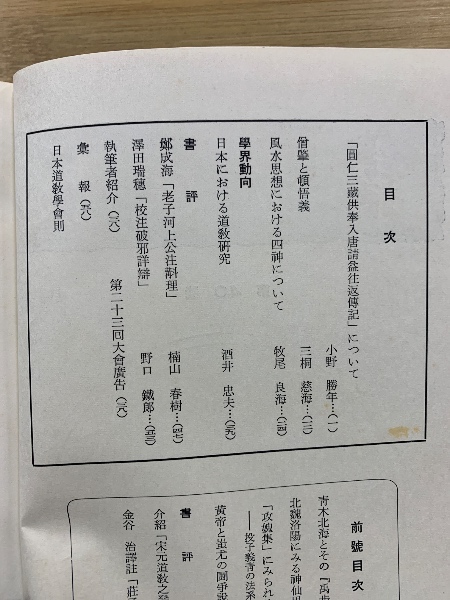 目次
「圓仁三藏供奉入唐請益往返傳記」について 小野 勝年…(一)
僧肇と頓悟義 三桐 慈海…(三)
風水思想における四神について 牧尾 良海…(四)
學界動向
日本における道敎硏究 酒井 忠夫…(元)
書評
鄭成海「老子河上公注斠理」 楠山 春樹…(四七)
澤田瑞穗「校注破邪詳辯」 野口 鐵郎…(五三)
執筆者紹介 第二十三回大會廣告
彙報
日本道敎學會則
前號目次
靑木北海とその『禹步
北魏洛陽にみる神仙
「攻媿集」にみられ
──投子義靑の法系
黃帝と蚩尤の鬪爭說
書評
介紹「宋元道敎之發
金谷 治譯註「莊子